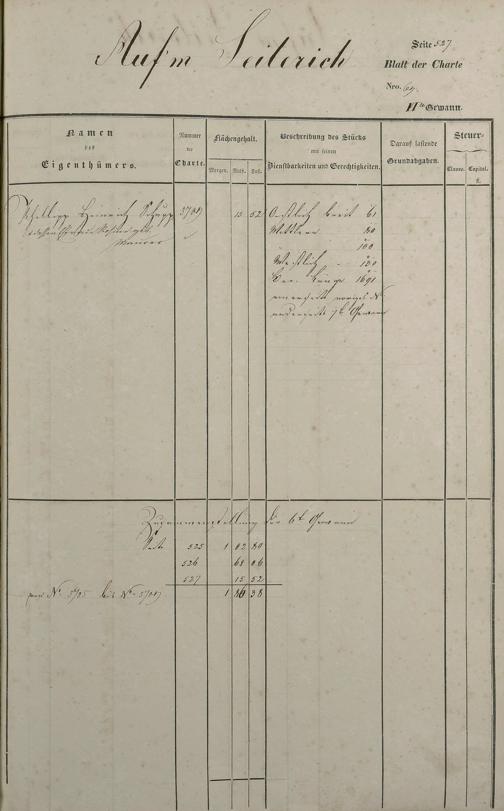 Auf'm Seiterich
Seite 527
Blatt der Charte
Nro. 69.
IIte Gewann.
Namen
des
Eigenthümers.
Nummer
der
Charte.
Flächengehalt.
Morgen. Ruth. Fuß.
Beschreibung des Stücks
mit seinen
Dienstbarkeiten und Gerechtigkeiten.
Darauf lastende
Grundabgaben.
Steuer-
Classe. Capital.
fl.
Philipp Heinrich Schupp 15 52 Oestlich breit 61
Mittlere 80
100
Westlich - 130
Der. Länge 1691
Zusammenstellung der 6te Gewann
Seite 525 1 02 80
526 68 06
527 15 52
von No 5705 bis No 5709
1 86 38